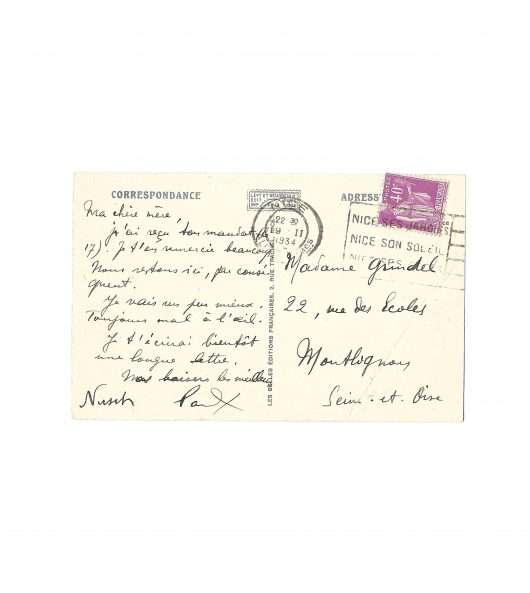 CORRESPONDANCE
ADRESS
40
NICE
22 30
9 - II
1934
NICE SES JARDINS
NICE SON SOLEIL
NICE SES
Ma chère mère,
j'ai reçu ton mandat (le
17). Je t'en remercie beaucoup.
Nous restons ici, par consé-
quent.
Je vais un peu mieux.
Toujours mal à l'œil.
Je t'écrirai bientôt
une longue lettre.
Nos baisers les meilleurs
Nusch Paul
LES BELLES ÉDITIONS FRANÇAISES, 2, RUE
Madame Grindel
22, rue des Écoles
Montlignon
Seine-et-Oise